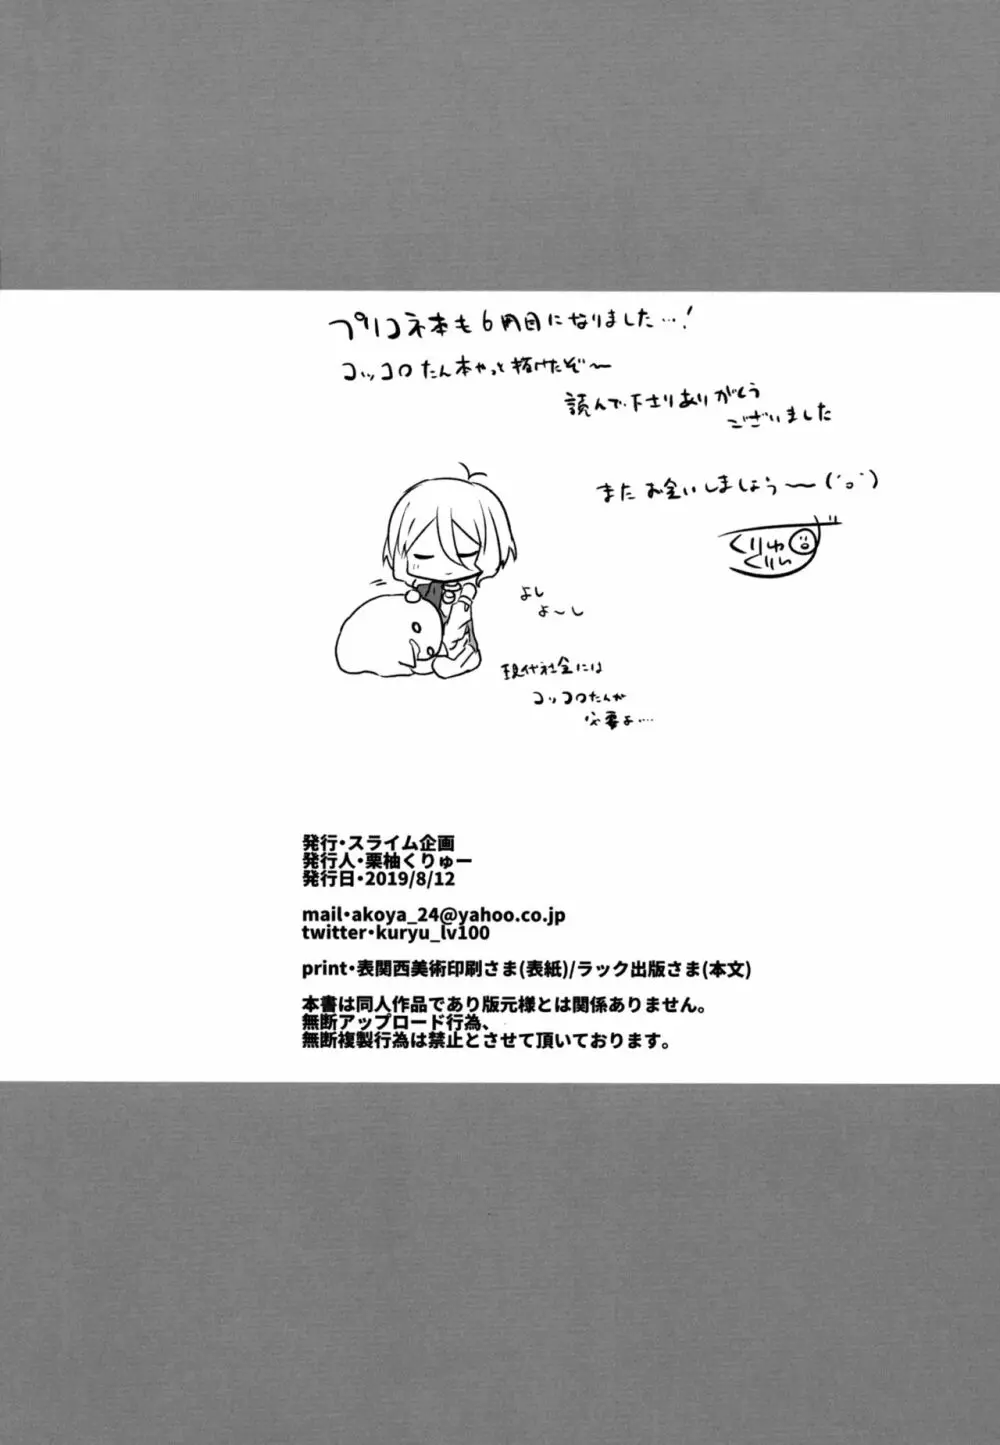 プリコネ本も6冊目になりました…!
コッコロたん本やっと描けたぞ〜
読んで下さりありがとう
ございました
また お会いしましょう〜(´o`)
くりゅー
よし
よ〜し
現代社会には
コッコロたんが
必要よ…
発行・スライム企画
発行人・栗柚くりゅー
発行日・2019/8/12
mail・akoya_24@yahoo.co.jp
twitter・kuryu_lv100
print・表関西美術印刷さま(表紙)/ラック出版さま(本文)
本書は同人作品であり版元様とは関係ありません。
無断アップロード行為、
無断複製行為は禁止とさせて頂いております。